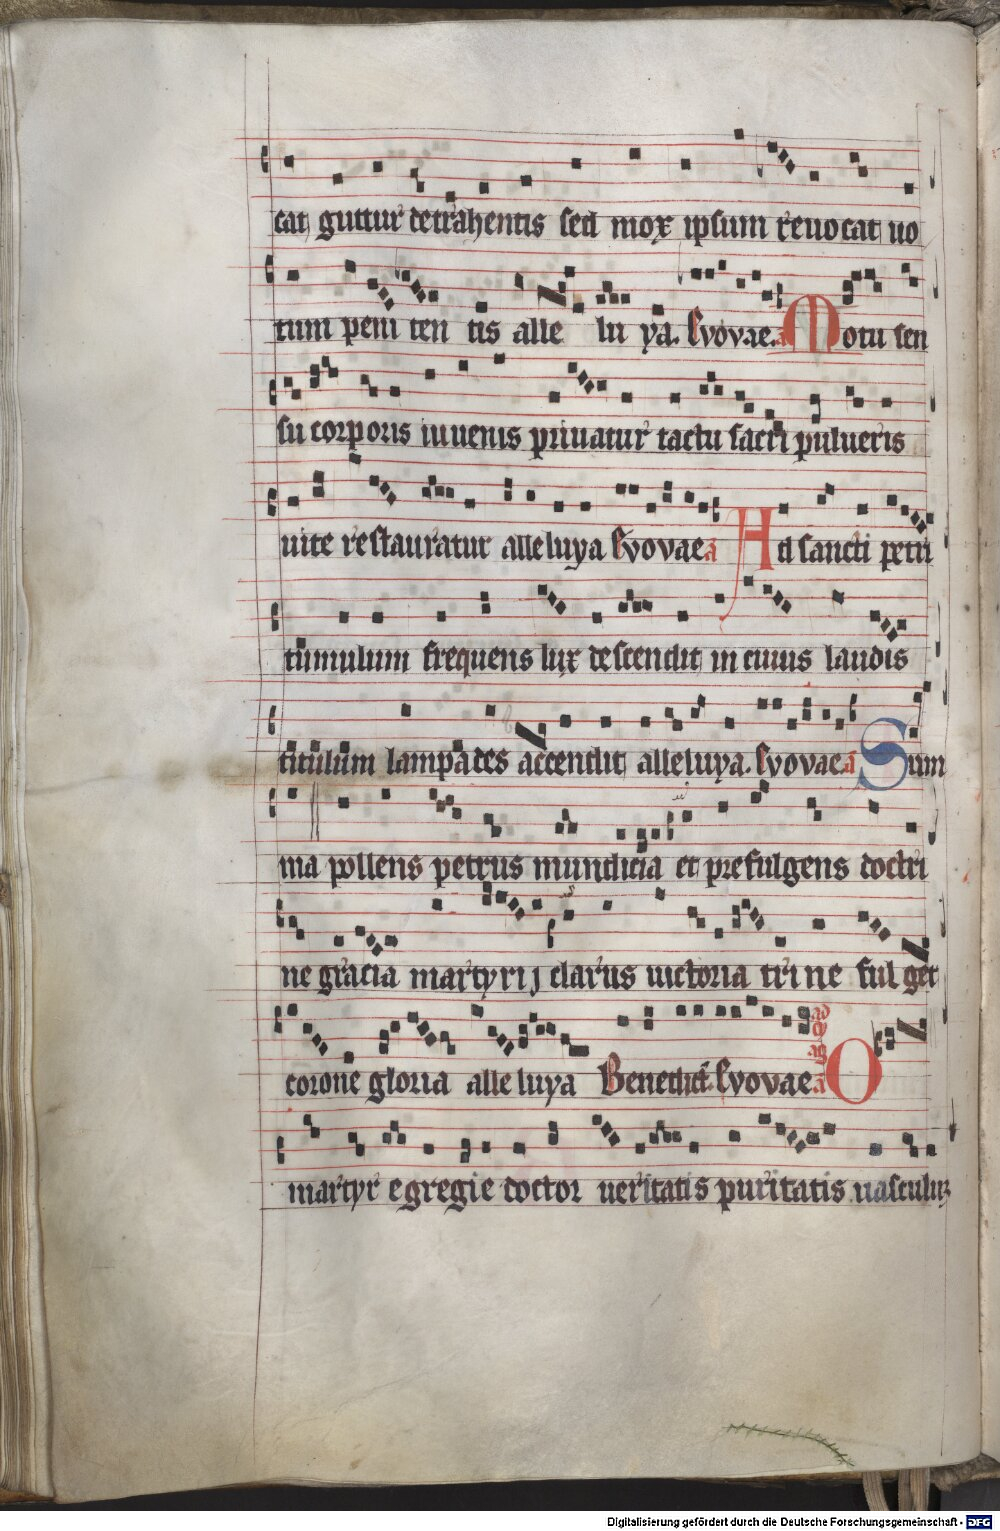 cat guttur detrahentis sed mox ipsum reuocat uo
tum peni ten tis alle lu ya. Evovae. a Motu sen
su corporis iuuenis priuatur tactu sacri pulueris
uite restauratur alleluya Evovae a Ad sancti petri
tumulum frequens lux descendit in cuius laudis
titulum lampades accendit alleluya. Evovae. a Sum
ma pollens petrus mundicia et prefulgens doctri
ne gracia martyrij clarus uictoria trine fulget
corone gloria alleluya Benedict Evovae a O
martyr egregie doctor ueritatis puritatis uasculuz
Digitalisierung gefördert durch die Deutsche Forschungsgemeinschaft - DFG